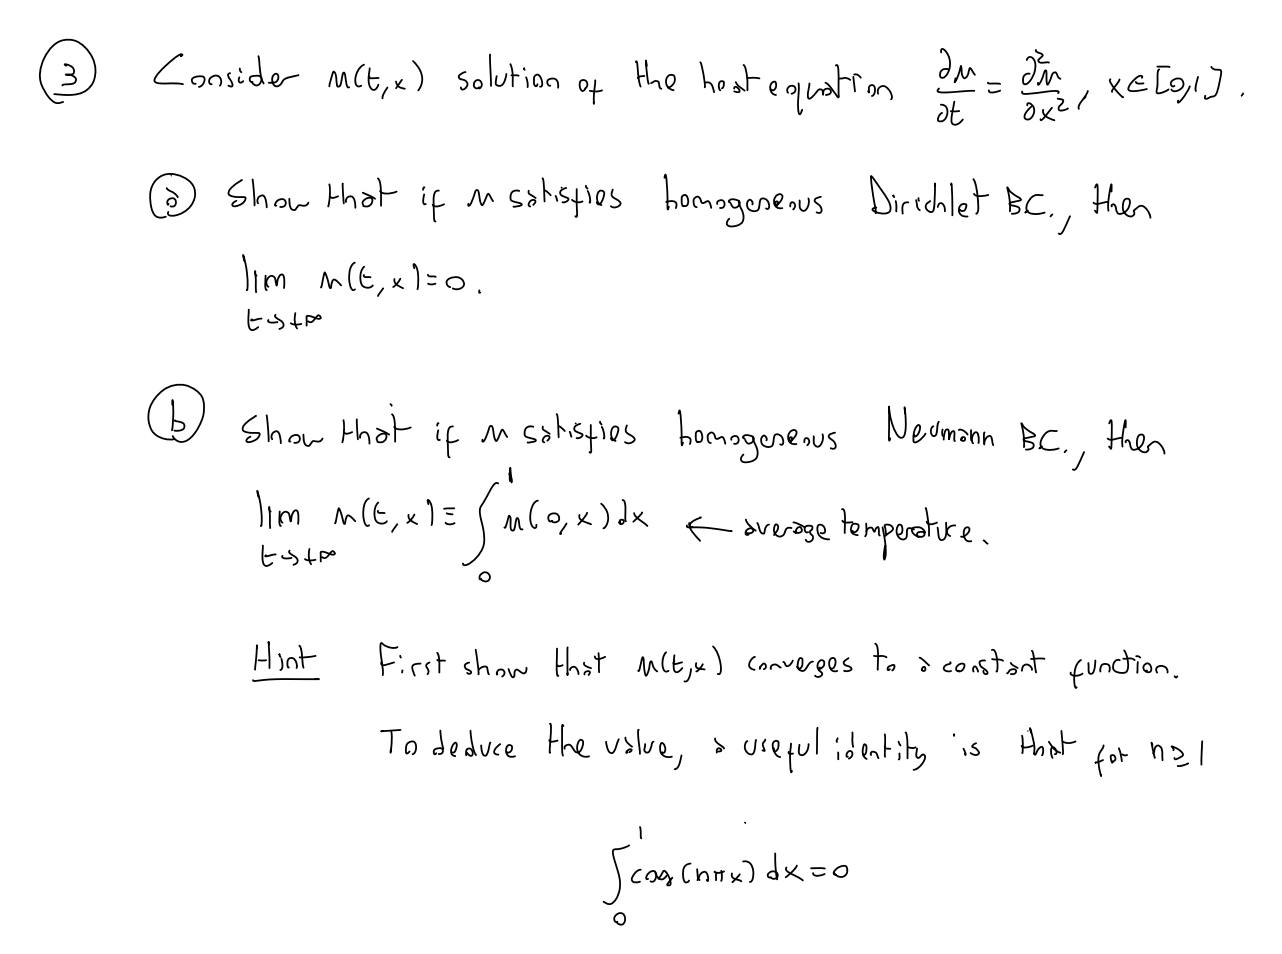 ③ Consider u(t,x) solution of the heat equation ∂u/∂t = ∂²u/∂x², x∈[0,1].
ⓐ Show that if u satisfies homogeneous Dirichlet BC., then
lim u(t,x)=0.
t→+∞
ⓑ Show that if u satisfies homogeneous Neumann BC., then
lim u(t,x) ≡ ∫₀¹ u(0,x)dx ← average temperature.
t→+∞
Hint First show that u(t,x) converges to a constant function.
To deduce the value, a useful identity is that for n≥1
∫₀¹ cos(nπx)dx=0